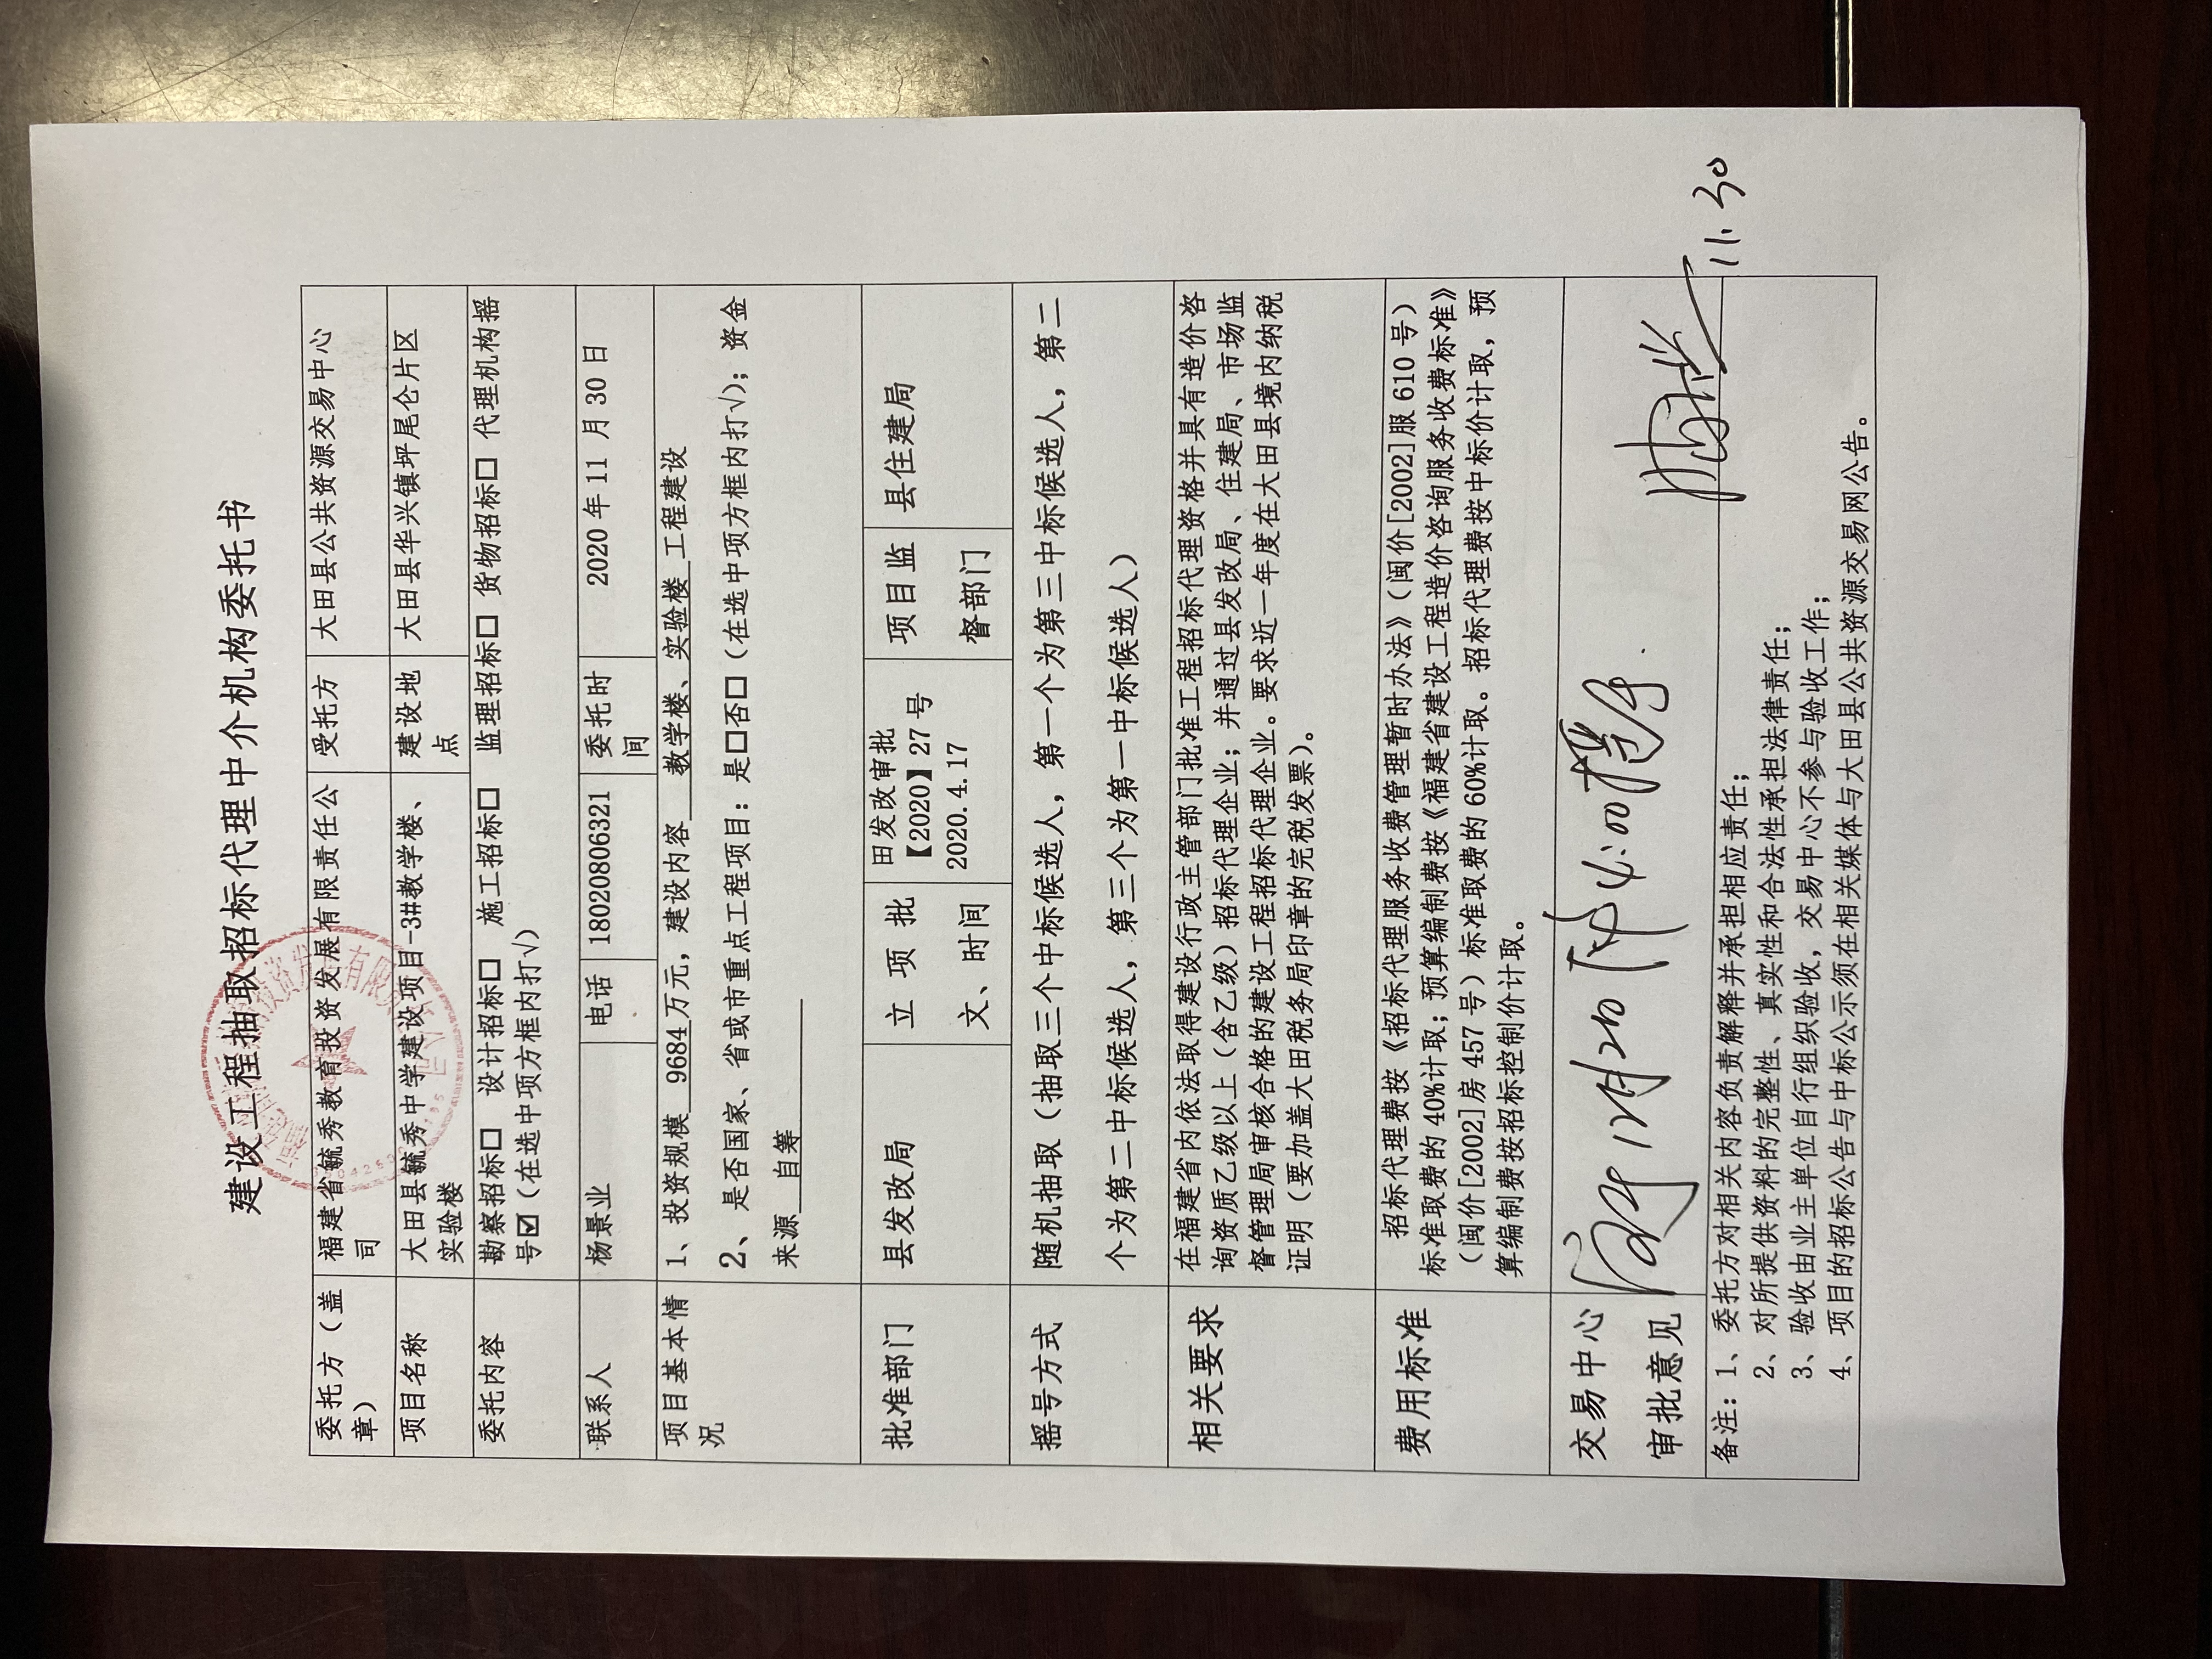 建设工程抽取招标代理中介机构委托书
委托方（盖章） 福建省毓秀教育投资发展有限责任公司 受托方 大田县公共资源交易中心
项目名称 大田县毓秀中学建设项目-3#教学楼、实验楼 建设地点 大田县华兴镇坪尾仑片区
委托内容 勘察招标□ 设计招标□ 施工招标□ 监理招标□ 货物招标□ 代理机构摇
号☑（在选中项方框内打√）
联系人 杨景业 电话 18020806321 委托时间 2020年11月30日
项目基本情况 1、投资规模 9684万元，建设内容 教学楼、实验楼 工程建设
2、是否国家、省或市重点工程项目：是□否□（在选中项方框内打√）；资金
来源 自筹
批准部门 县发改局 立项批文、时间 田发改审批【2020】27号 2020.4.17 项目监督部门 县住建局
摇号方式 随机抽取（抽取三个中标候选人，第一个为第三中标候选人，第二
个为第二中标候选人，第三个为第一中标候选人）
相关要求 在福建省内依法取得建设行政主管部门批准工程招标代理资格并具有造价咨
询资质乙级以上（含乙级）招标代理企业；并通过县发改局、住建局、市场监
督管理局审核合格的建设工程招标代理企业。要求近一年度在大田县境内纳税
证明（要加盖大田税务局印章的完税发票）。
费用标准 招标代理费按《招标代理服务收费管理暂时办法》（闽价[2002]服610号）
标准取费的40%计取；预算编制费按《福建省建设工程造价咨询服务收费标准》
（闽价[2002]房457号）标准取费的60%计取。招标代理费按中标价计取，预
算编制费按招标控制价计取。
交易中心
审批意见
11.30
备注：1、委托方对相关内容负责解释并承担相应责任；
2、对所提供资料的完整性、真实性和合法性承担法律责任；
3、验收由业主单位自行组织验收，交易中心不参与验收工作；
4、项目的招标公告与中标公示须在相关媒体与大田县公共资源交易网公告。